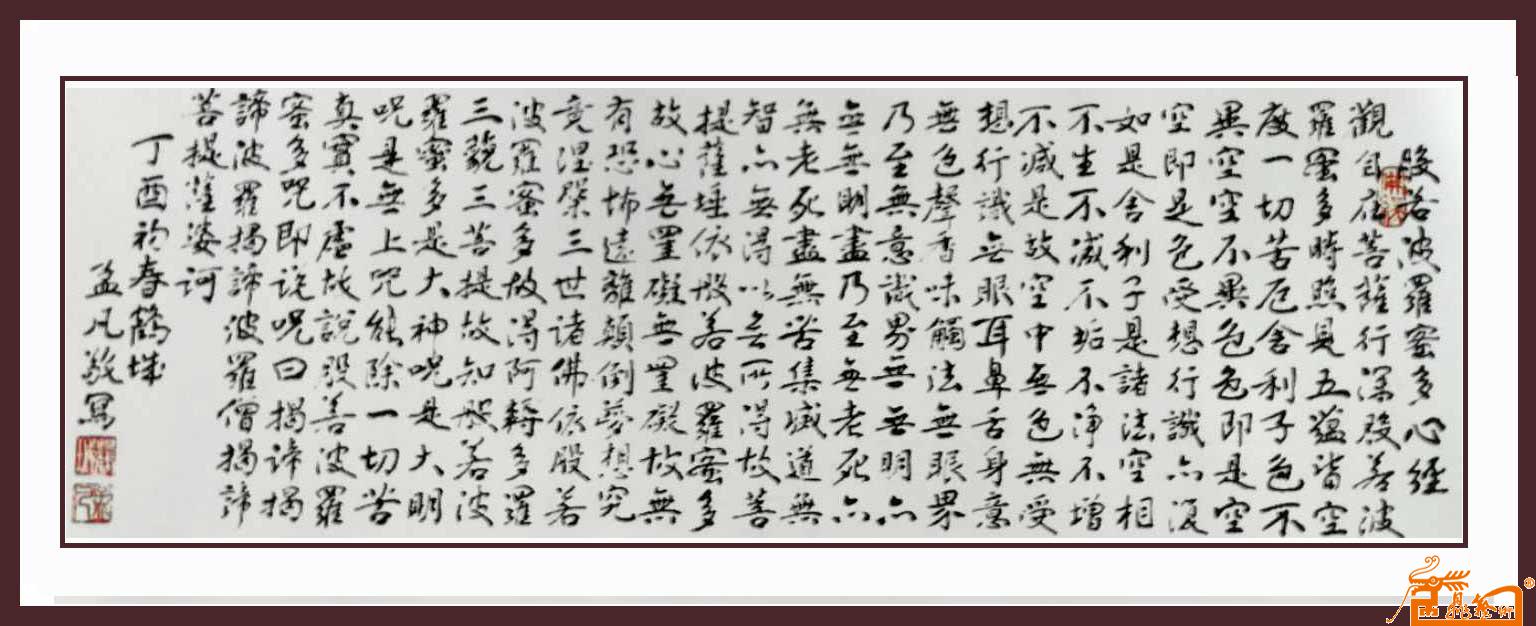 般若波羅蜜多心經
觀自在菩薩行深般若波
羅蜜多時照見五蘊皆空
度一切苦厄舍利子色不
異空空不異色色即是空
空即是色受想行識亦復
如是舍利子是諸法空相
不生不滅不垢不淨不增
不減是故空中無色無受
想行識無眼耳鼻舌身意
無色聲香味觸法無眼界
乃至無意識界無無明亦
無無明盡乃至無老死亦
無老死盡無苦集滅道無
智亦無得以無所得故菩
提薩埵依般若波羅蜜多
故心無罣礙無罣礙故無
有恐怖遠離顛倒夢想究
竟涅槃三世諸佛依般若
波羅蜜多故得阿耨多羅
三藐三菩提故知般若波
羅蜜多是大神呪是大明
呪是無上呪能除一切苦
真實不虛故說般若波羅
蜜多呪即說呪曰揭諦揭
諦波羅揭諦波羅僧揭諦
菩提薩婆訶
丁酉初春鶴城
孟凡敬寫